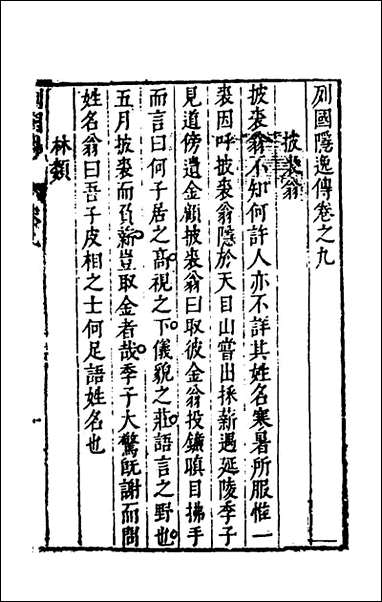 列國隱逸傳卷之九
披裘翁
披裘翁不知何許人亦不詳其姓名寒暑所服惟一
裘因呼披裘翁隱於天目山嘗出採薪遇延陵季子
見道傍遺金顧披裘翁曰取彼金翁投鐮瞋目拂手
而言曰何子居之高視之下儀貌之莊語言之野也
五月披裘而負薪豈取金者哉季子大驚旣謝而問
姓名翁曰吾子皮相之士何足語姓名也
林類